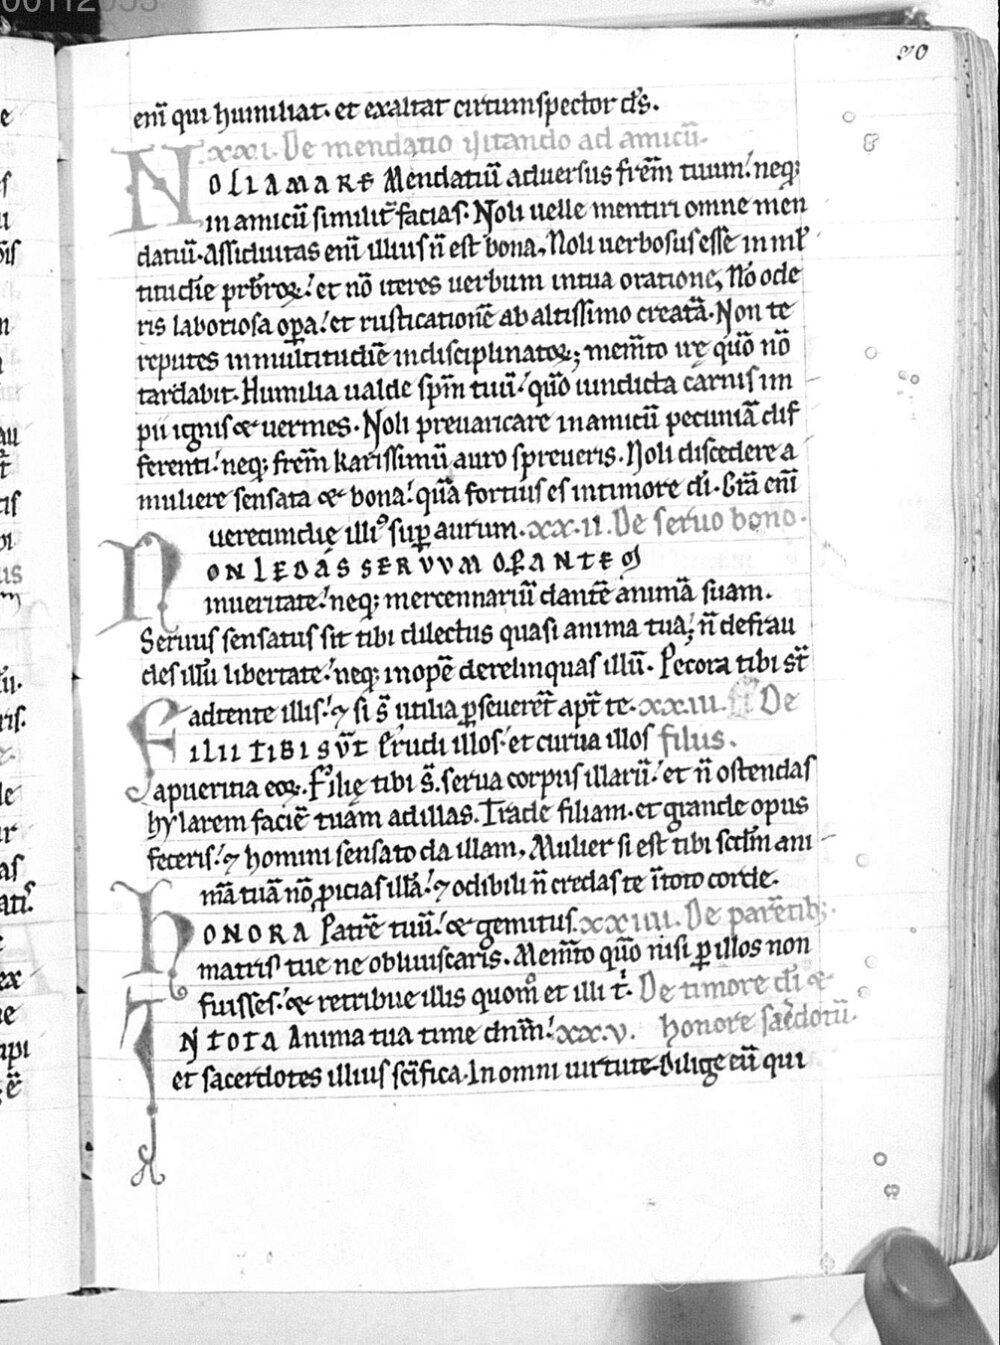 00112655
90
enī qui humiliat. et exaltat circumspector d̄s.
xxi. De mendatio uitando ad amicū.
NOLI AMARE Mendatiū aduersus fr̄em tuum. neq;
in amicū similit̄ facias. Noli uelle mentiri omne men
datiū. Assiduitas enī illius n̄ est bona. Noli uerbosus esse in ml̄
titudīe prb̄roꝝ. et nō iteres uerbum in tua oratione, Nō ode
ris laboriosa oꝑa. et rusticationē ab altissimo creatā. Non te
reputes in multitudīe indisciplinatoꝝ; mem̄to irę quō nō
tardabit. Humilia ualde sp̄m tuū. quō uindicta carnis im
pii ignis & uermes. Noli preuaricare in amicū pecuniā dif
ferenti. neq; fr̄em karissimū auro spreueris. Noli discedere a
muliere sensata & bona. quā fortius es in timore dī. Grā enī
uerecundię illiꝰ suꝑ aurum. xx.ii. De seruo bono.
NON LEDAS SERVVM OPANTEM
in ueritate. neq; mercennariū dantē animā suam.
Seruus sensatus sit tibi dilectus quasi anima tua, n̄ defrau
des illū libertate. neq; inopē derelinquas illū. Pecora tibi st̄
adtente illis. ⁊ si s̄ utilia ꝑseuerēt apt̄ te. xxiii. De
FILII TIBI SVT Erudi illos. et curua illos filus.
a pueritia eoꝝ. Filię tibi s̄. serua corpus illarū. et n̄ ostendas
hylarem faciē tuam ad illas. Trade filiam. et grande opus
feceris. ⁊ homini sensato da illam, Mulier si est tibi scdm̄ ani
mā tuā nō ꝓicias illā. ⁊ odibili n̄ credas te ī toto corde.
HONORA Patrē tuū. & gemitus xxiiii. De parētib;.
matris tue ne obliuiscaris. Mem̄to quō nisi ꝑ illos non
fuisses. & retribue illis quomō et illi t̄. De timore dī &
IN TOTA Anima tua time dnm̄. xxv. honore sacēdotū.
et sacerdotes illius sc̄ifica. In omni uirtute dilige eū qui